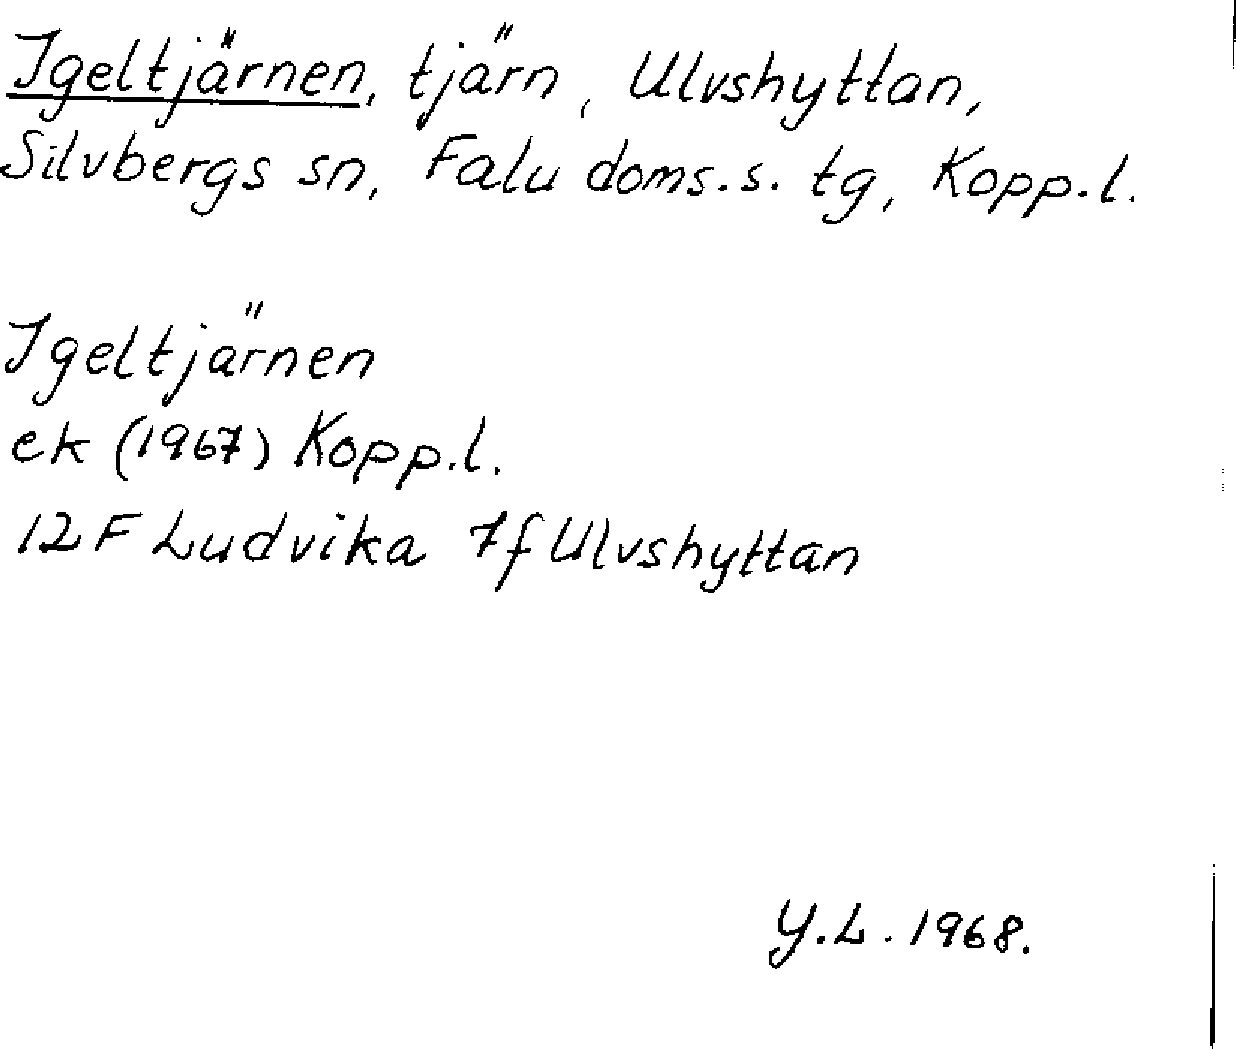 Igeltjärnen, tjärn, Ulvshyttan,
Silvbergs sn, Falu doms.s. tg, Kopp.l.
Igeltjärnen
ek (1967) Kopp.l.
12F Ludvika 7f Ulvshyttan
Y.L. 1968.